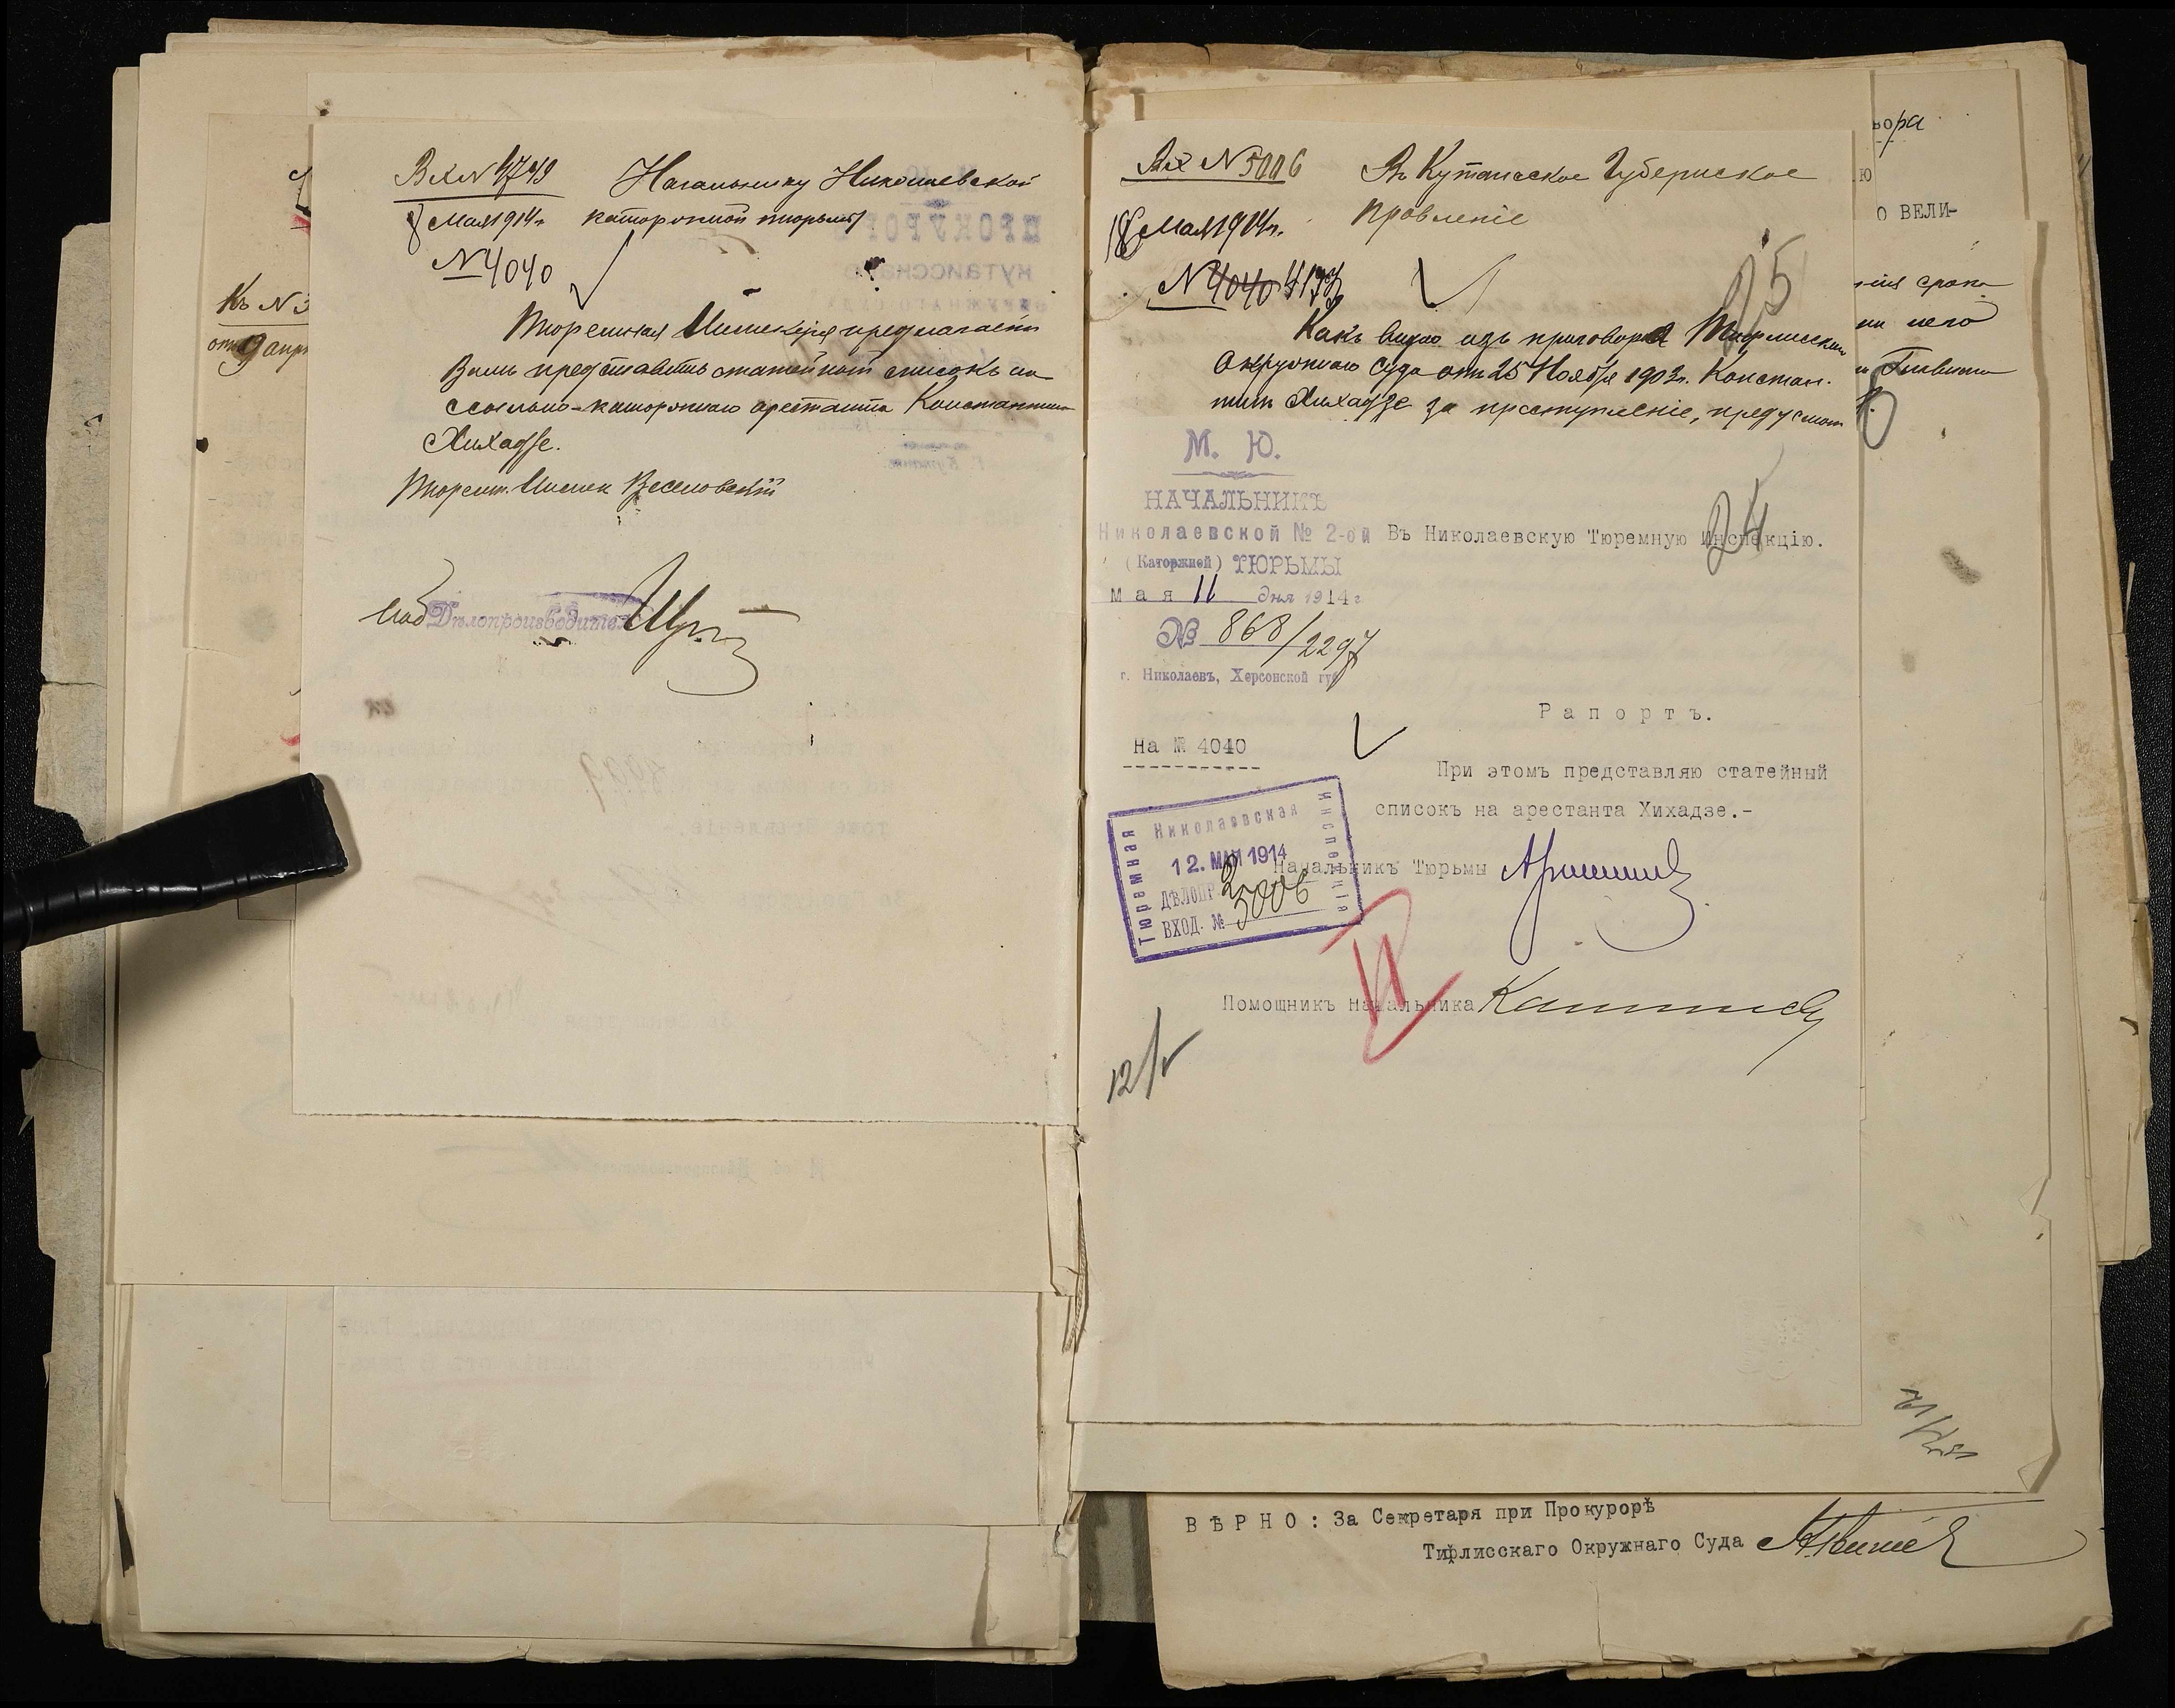 Вх N 4749
Начальнику Николаевской
8 Мая 1914 г.
каторжной тюрьмы
N 4040
Тюремная Инспекція предлагаетъ
Вамъ представить статейный списокъ на
ссыльно-каторжнаго арестанта Константина
Хихадзе.
Тюремн. Инспек Веселовскій
Дѣлопроизводитель
Къ N 3
9 апр
Вх N 5006
Въ Кутаисское Губернское
Правленіе
18 Мая 1914 г.
N 4040
25
Какъ видно изъ приговора Тифлисскаго
Окружнаго Суда отъ 25 Ноября 1903 г. Констан-
тинъ Хихадзе за преступленіе, предусмот
М. Ю.
НАЧАЛЬНИКЪ
Николаевской № 2-ой
(Каторжной) ТЮРЬМЫ
Мая 11 дня 1914 г
№ 868/2297
г. Николаевъ, Херсонской губ
24
Въ Николаевскую Тюремную Инспекцію.
Рапортъ.
На № 4040
При этомъ представляю статейный
списокъ на арестанта Хихадзе.-
Николаевская
Тюремная
Инспекція
12. МАЯ 1914
ДѢЛОПР 2
ВХОД. № 5006
Начальникъ Тюрьмы
Помощникъ Начальника
12/V
ьора
ю
О ВЕЛИ-
срока
него
ВѢРНО: За Секретаря при Прокурорѣ
Тифлисскаго Окружнаго Суда